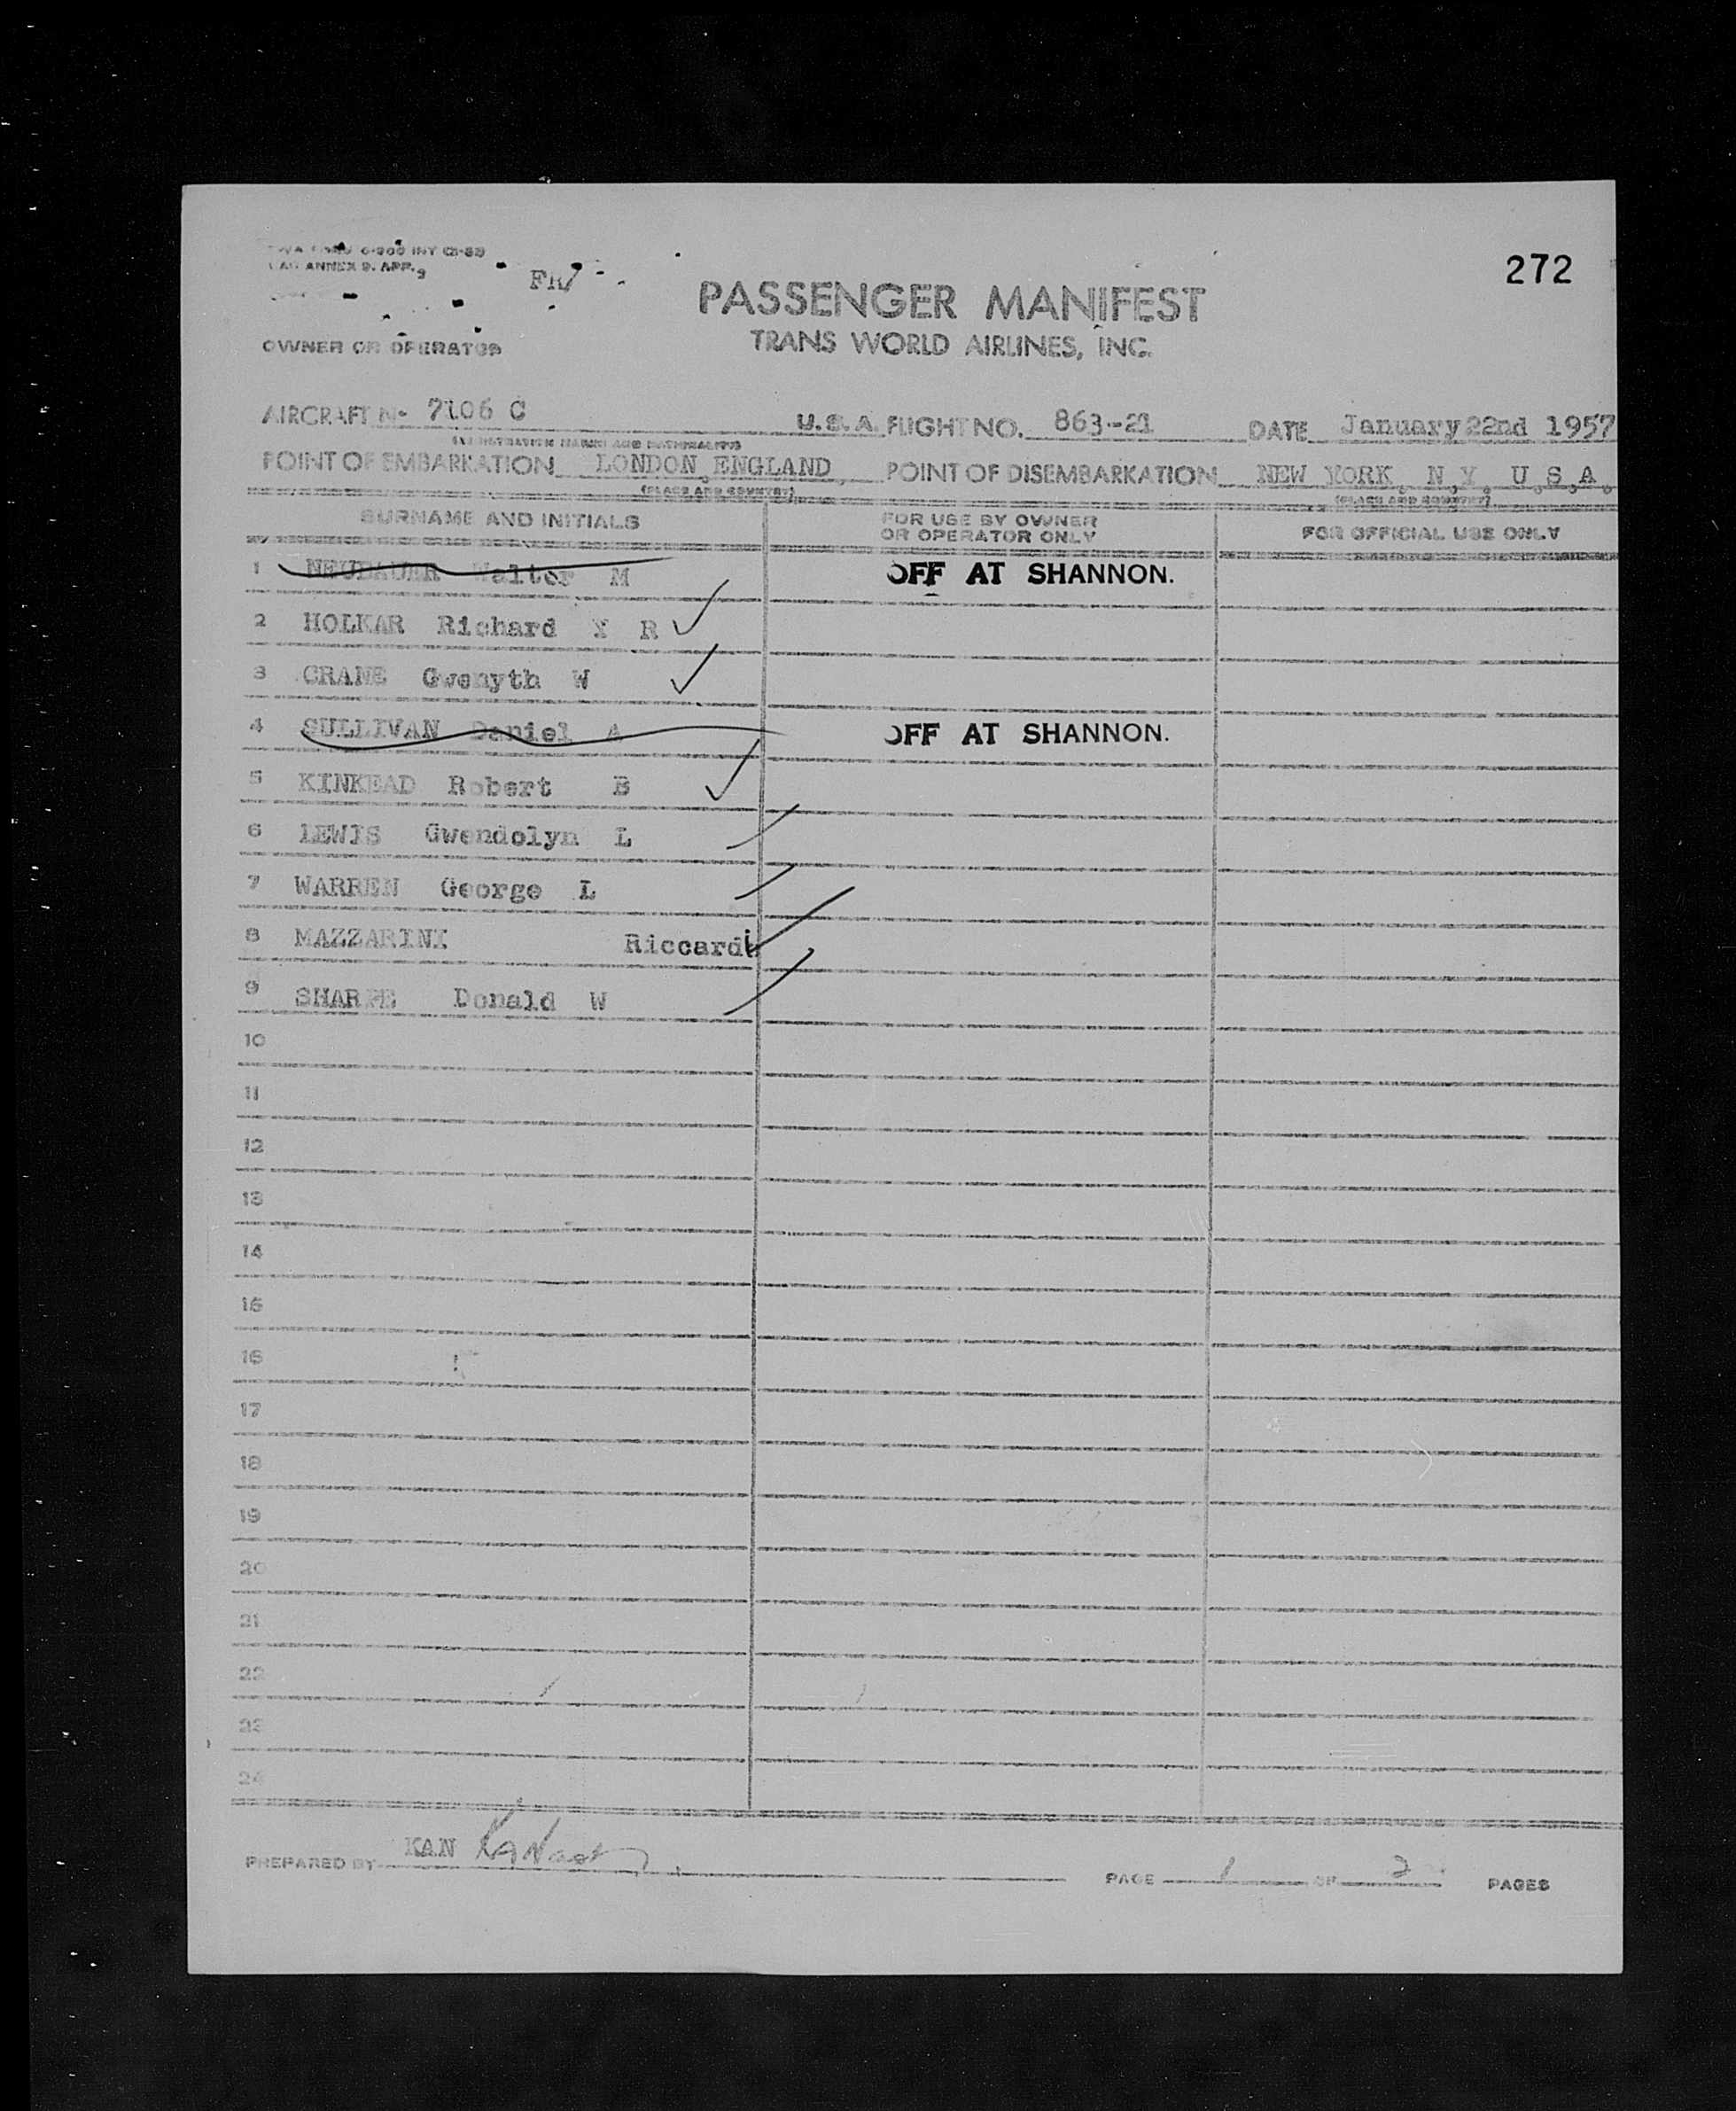 272
TWA FORM 0-900 INT
ANNEX 9. APP. 9
PASSENGER MANIFEST
TRANS WORLD AIRLINES, INC.
OWNER OR OPERATOR
AIRCRAFT No 7106 C U.S.A. FLIGHT NO. 863--21 DATE January 22nd 1957
(REGISTRATION MARKS AND NATIONALITY)
POINT OF EMBARKATION LONDON, ENGLAND, POINT OF DISEMBARKATION NEW YORK, N,Y, U,S,A,
(PLACE AND COUNTRY) (PLACE AND COUNTRY)
SURNAME AND INITIALS FOR USE BY OWNER OR OPERATOR ONLY FOR OFFICIAL USE ONLY
1 NEUBAUER Walter M OFF AT SHANNON.
2 HOLKAR Richard Y R
3 CRANE Gwenyth W
4 SULLIVAN Daniel A OFF AT SHANNON.
5 KINKEAD Robert B
6 LEWIS Gwendolyn L
7 WARREN George L
8 MAZZARINI Riccardi
9 SHARPE Donald W
10
11
12
13
14
15
16
17
18
19
20
21
22
23
24
PREPARED BY KAN
PAGE 1 OF 2 PAGES